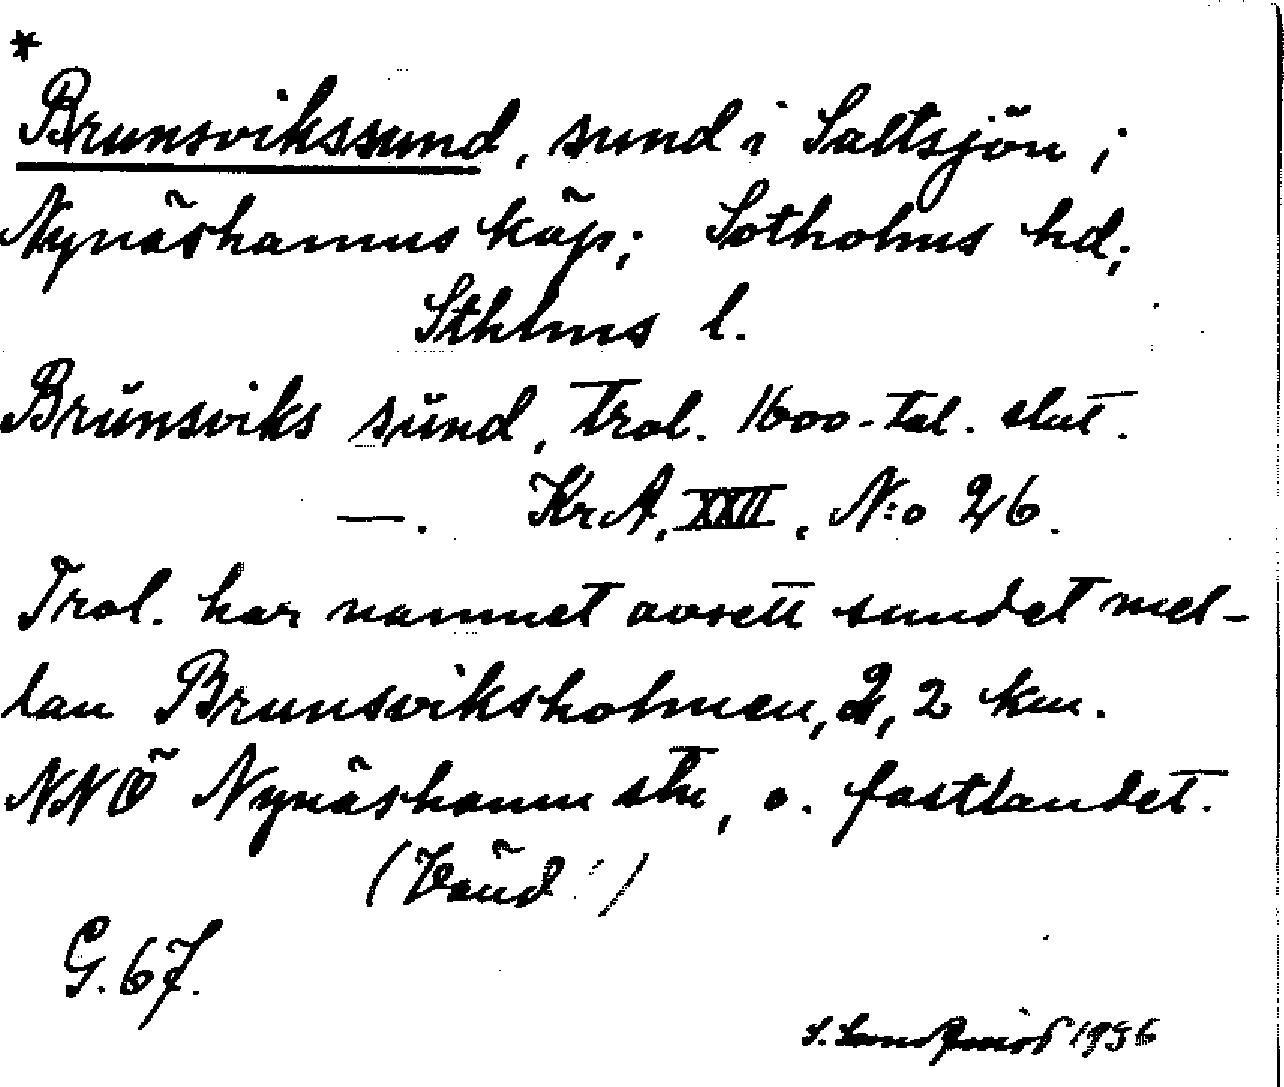 *
Brunsvikssund, sund i Saltsjön;
Nynäshamns köp; Sotholms hd;
Sthlms l.
Brŭnsviks sŭnd, trol. 1600-tal. slut.
—. KrA, XXII, N:o 26.
Trol. har namnet avsett sundet mel-
lan Brunsviksholmen, 2,2 km.
NNÖ Nynäshamn stn, o. fastlandet.
(Vänd!)
G. 67.
S. 1936